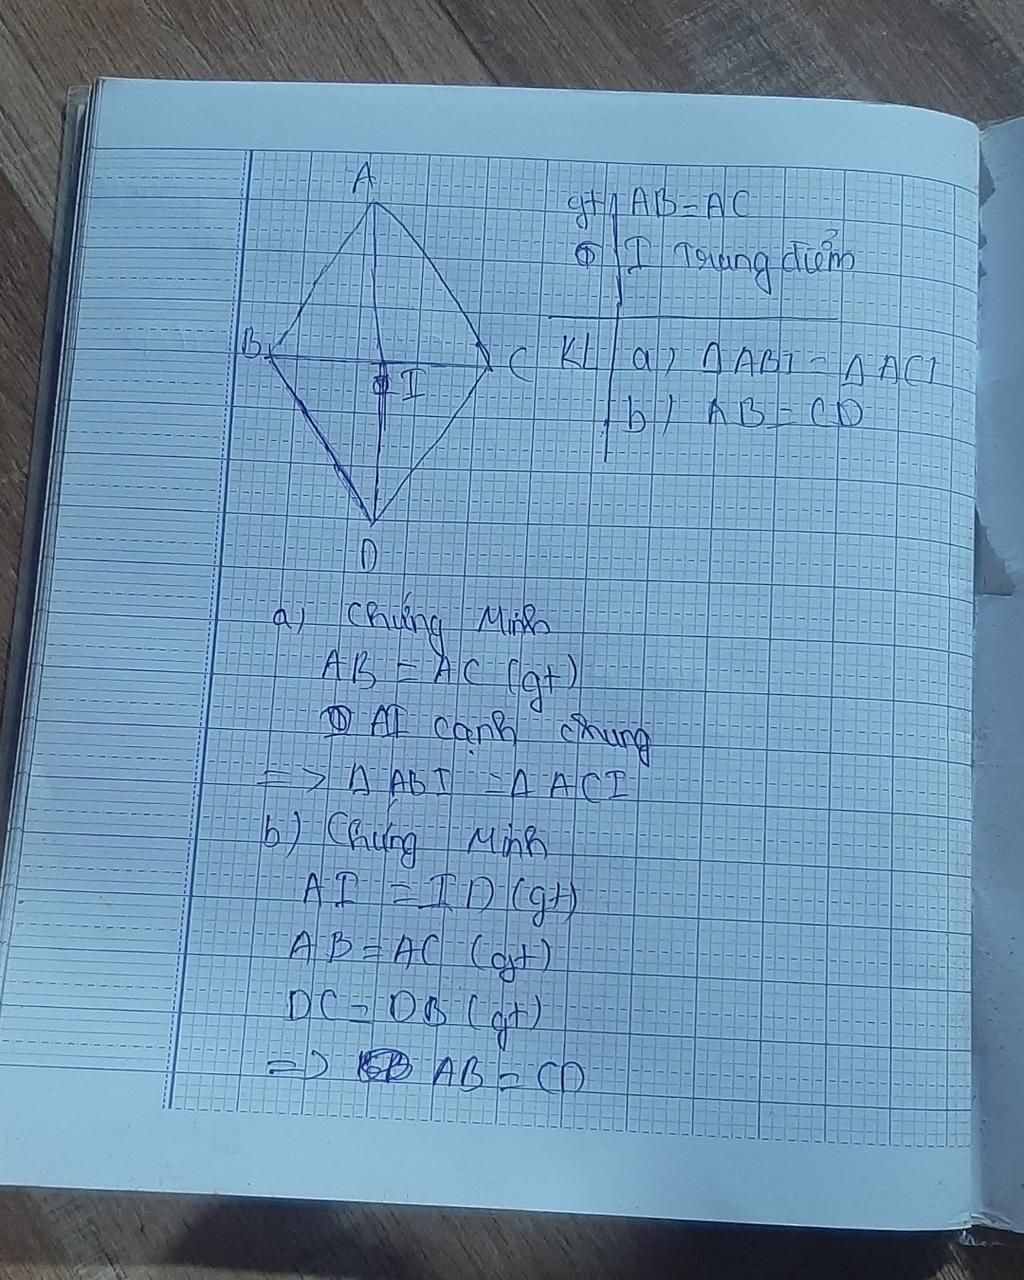 A
B
C
I
D
gt AB = AC
I Trung điểm
KL a) Δ ABI = Δ ACI
b) AB = CD
a) Chứng Minh
AB = AC (gt)
AI cạnh chung
=> Δ ABI = Δ ACI
b) Chứng Minh
AI = ID (gt)
AB = AC (gt)
DC = DB (gt)
=> AB = CD